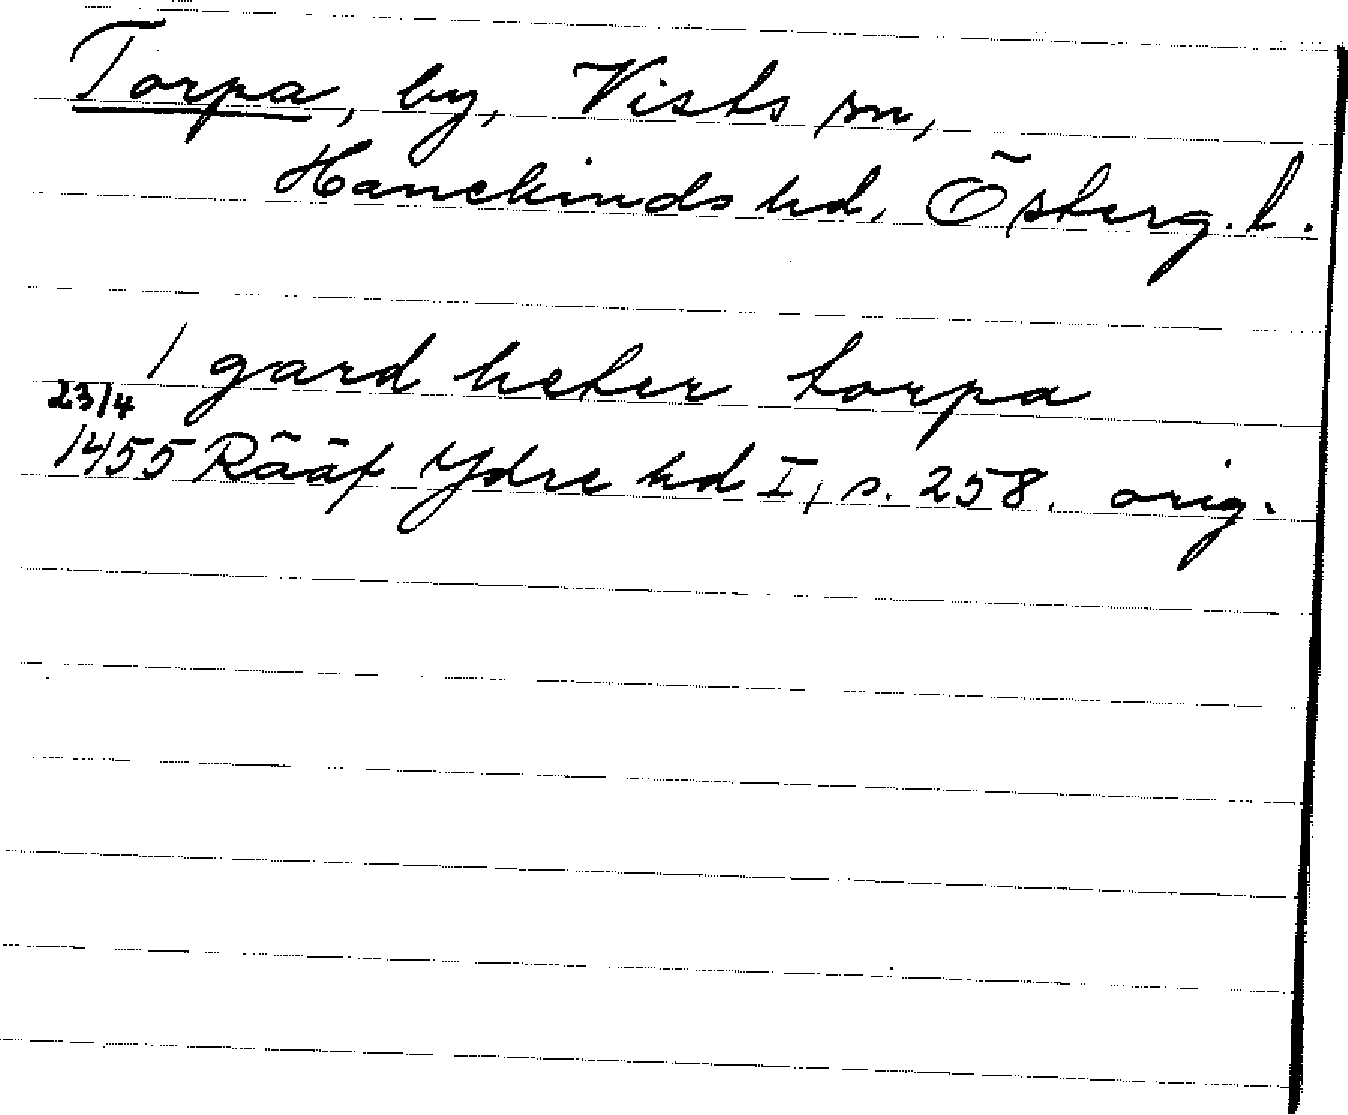 Torpa, by, Vists sn,
Hanekinds hd, Österg. l.
1 gard heter torpa
23/4
1455 Rääf Ydre hd I, s. 258. orig.